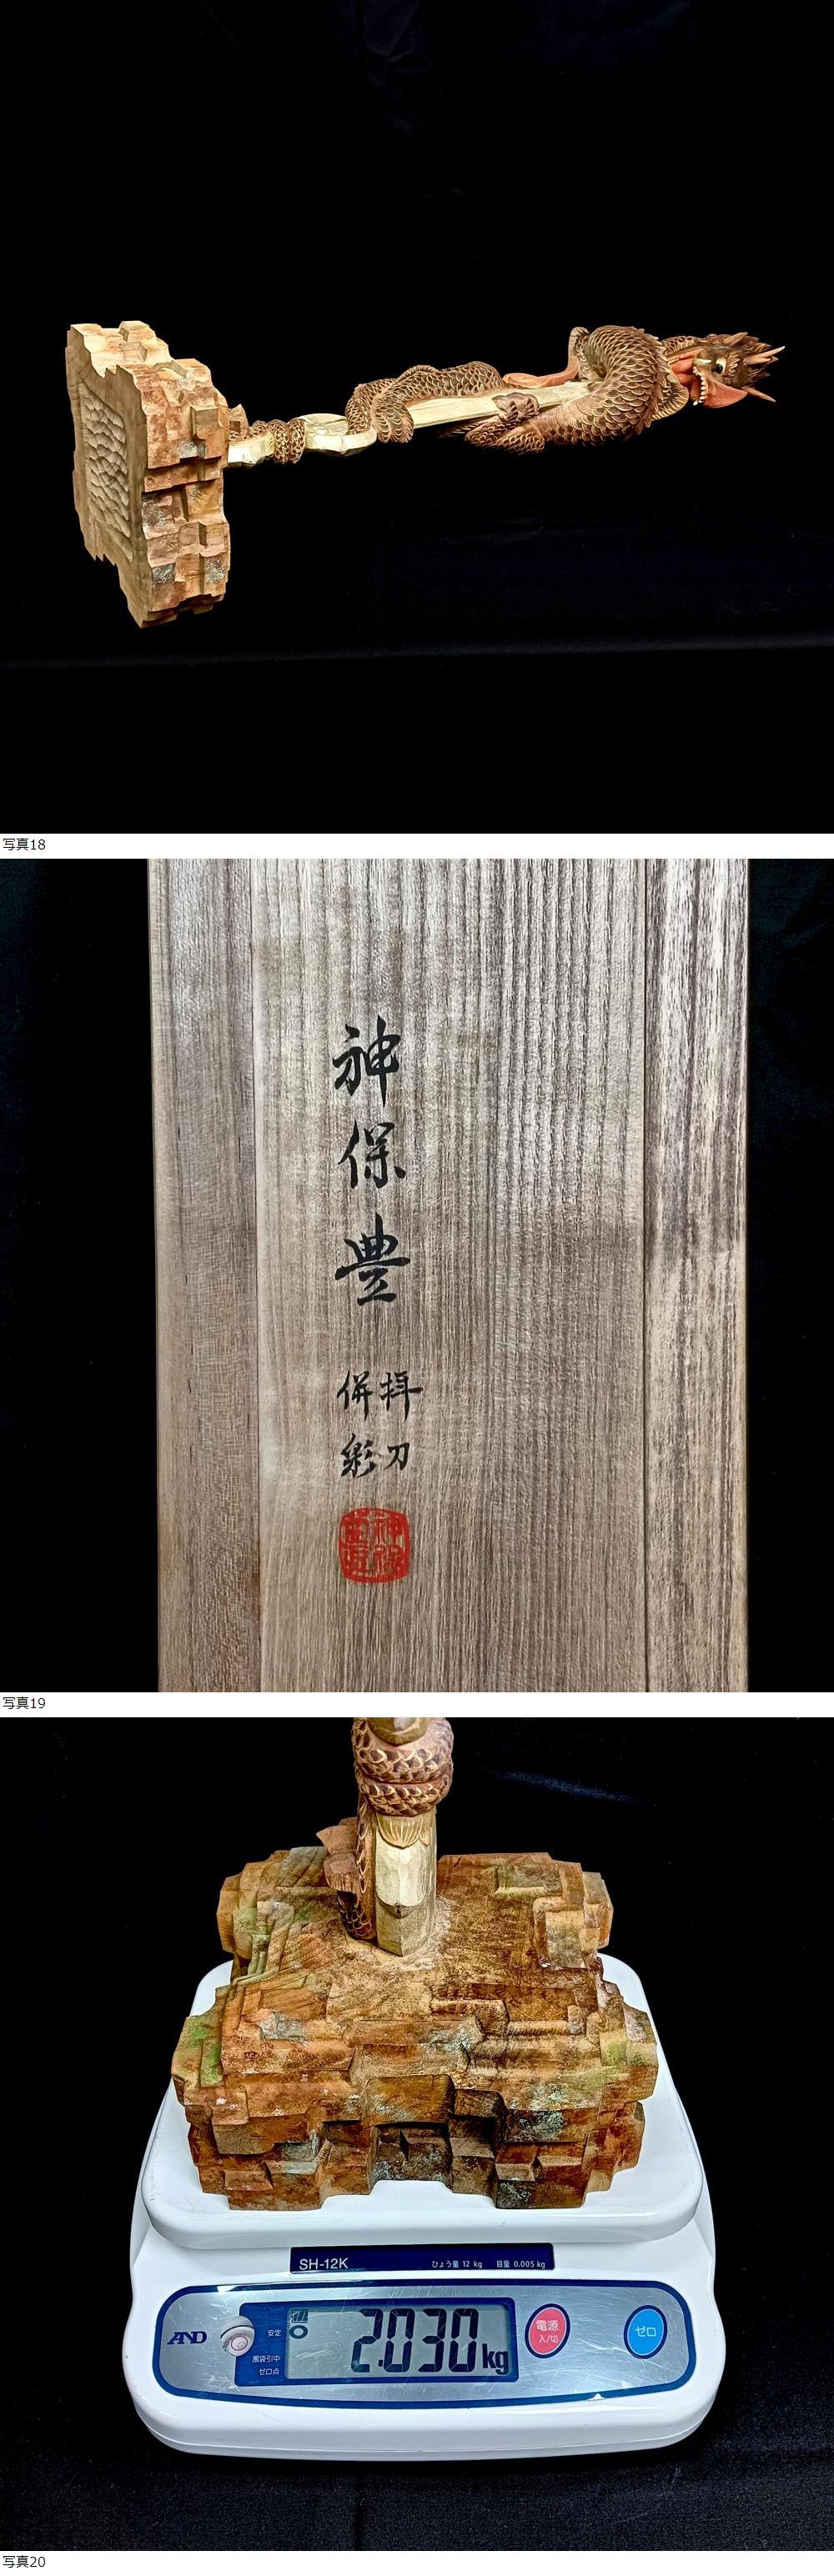 写真18
神保豊
拝刀
併彩
写真19
SH-12K
ひょう量 12 kg 目量 0.005 kg
AND
安定
風袋引中
ゼロ点
2.030kg
電源
入/切
ゼロ
写真20